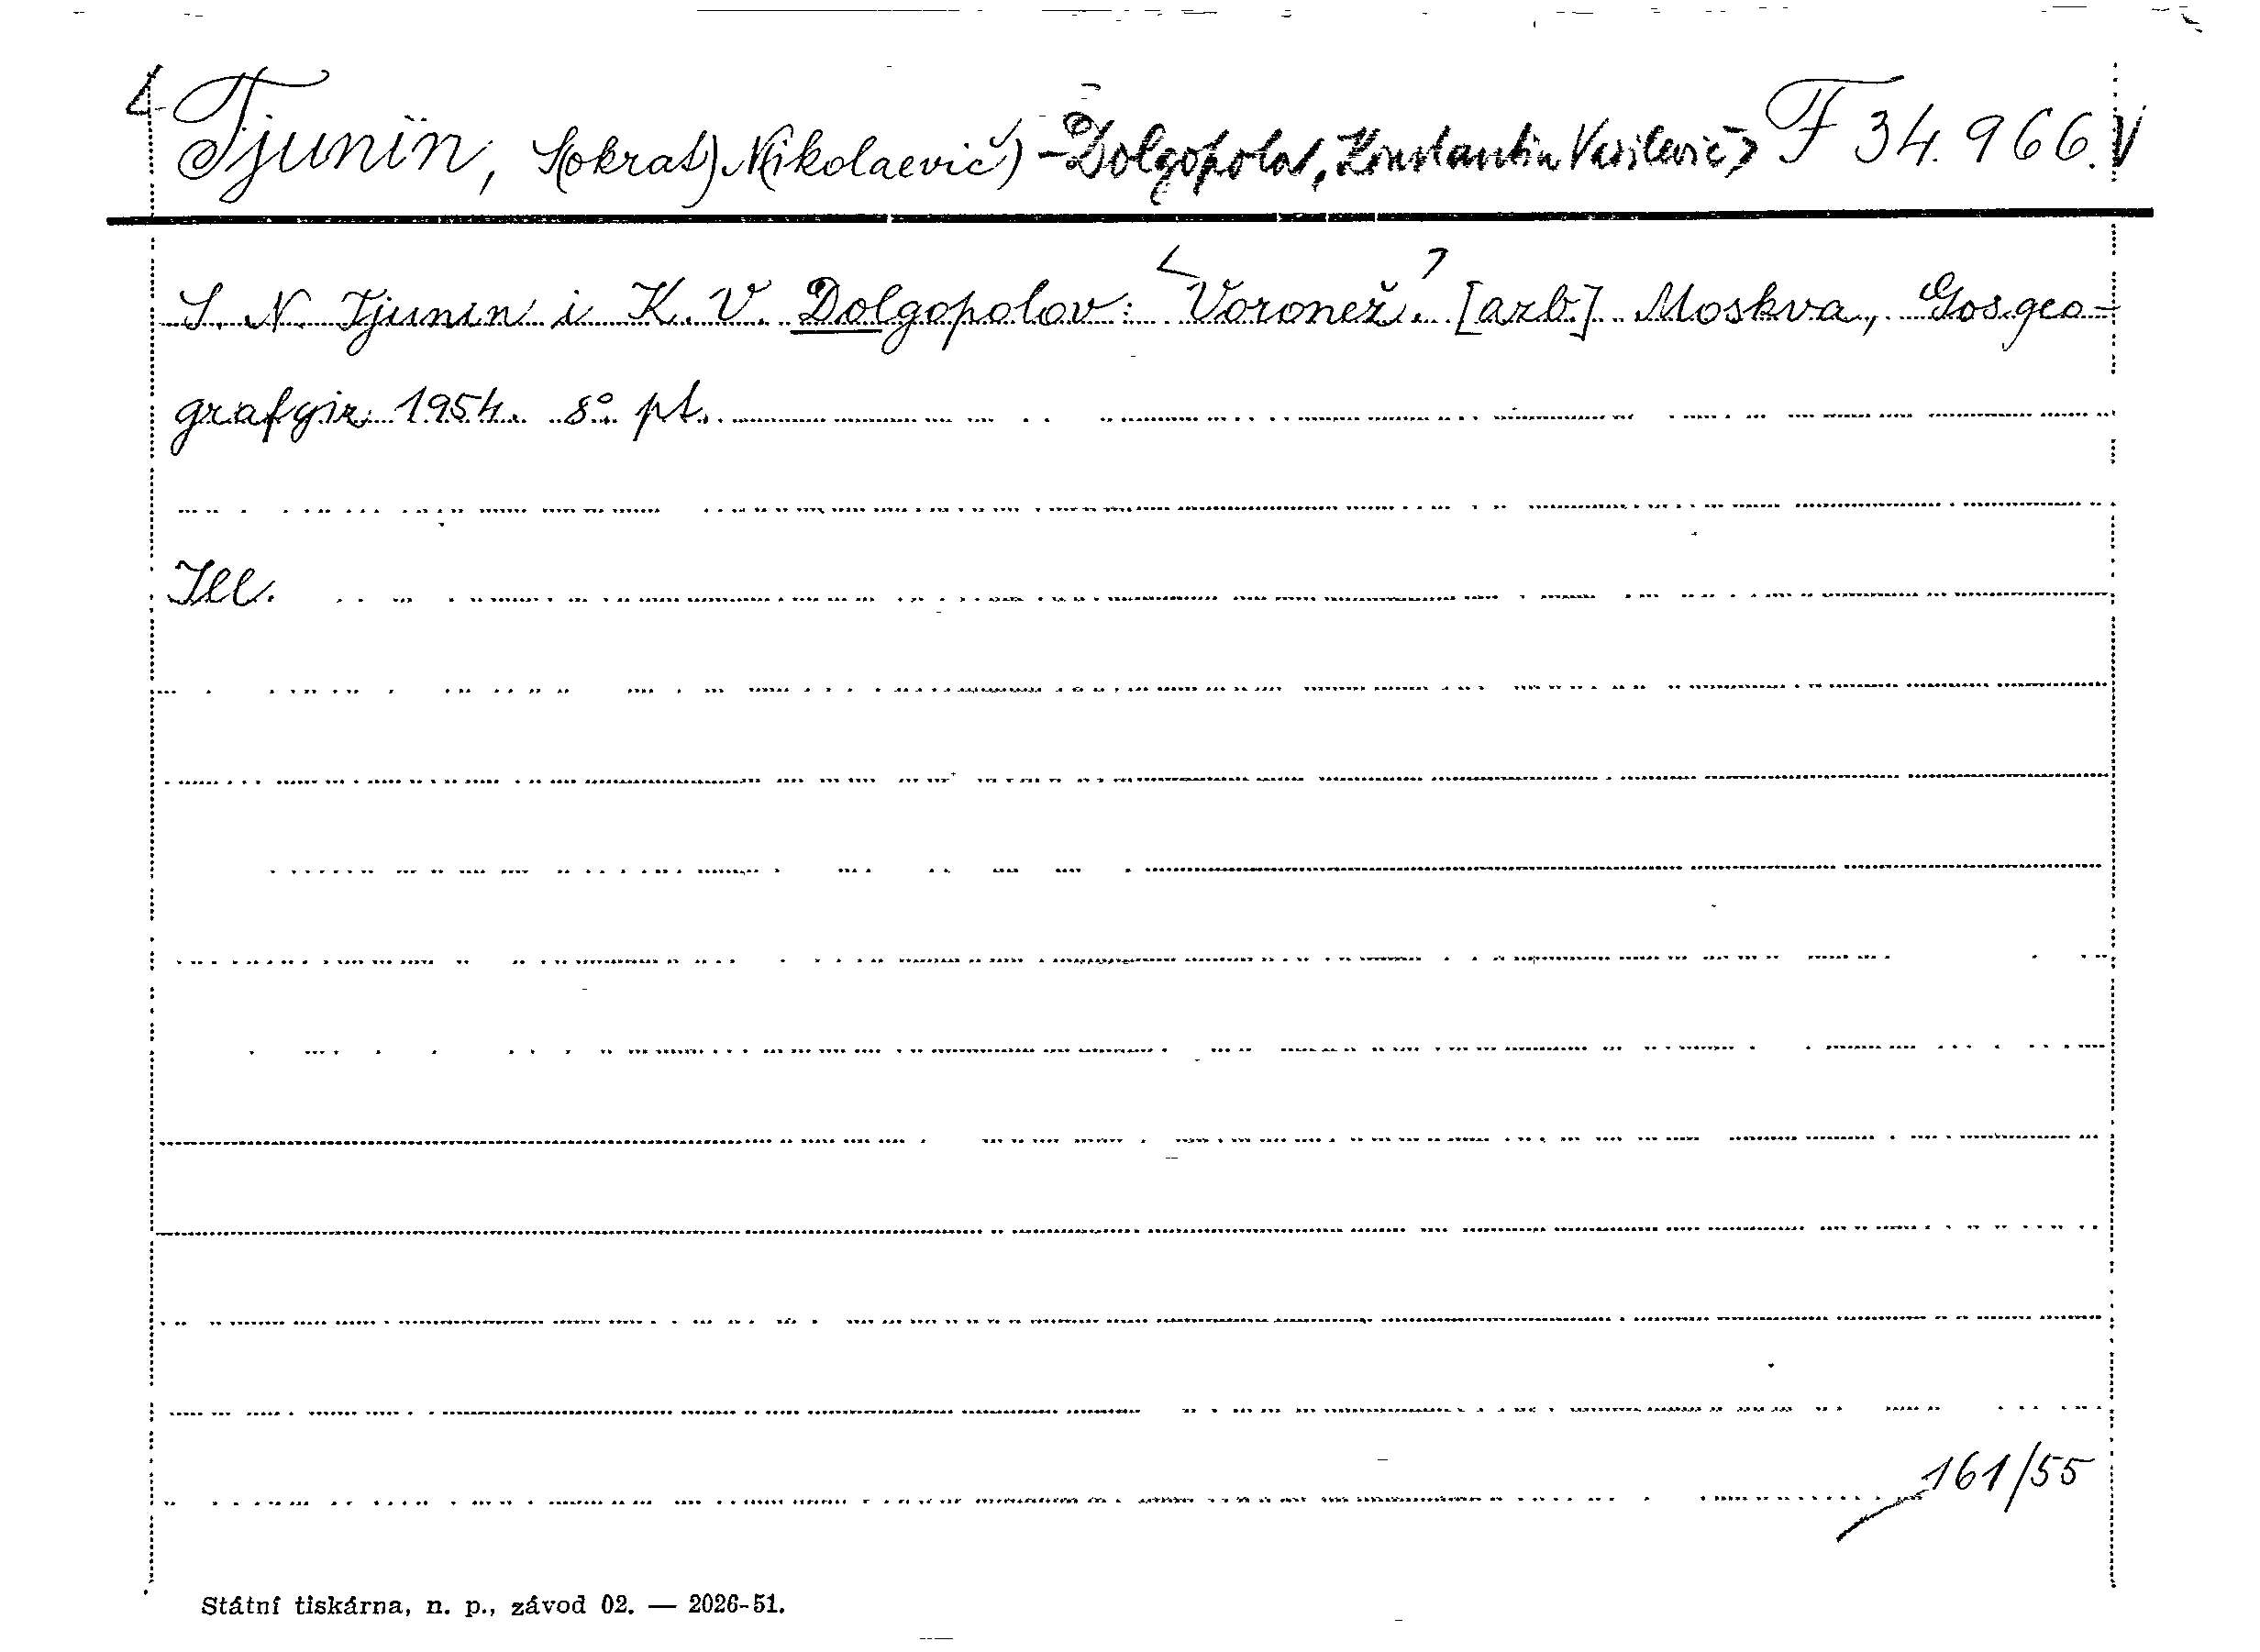 <Tjunin, S(okrat) N(ikolaevič) - Dolgopolov, Konstantin Vasilevič> F 34.966.V
S. N. Tjunin i K. V. Dolgopolov: <Voronež.> [azb.] Moskva, Gosgeo-
grafgiz 1954. 8° pt.
Ill.
161/55
Státní tiskárna, n. p., závod 02. — 2026-51.